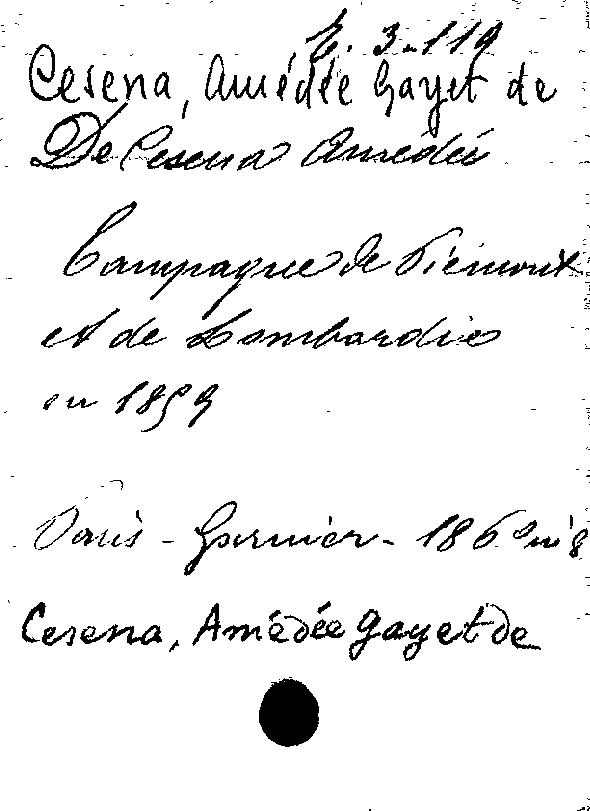 E. 3-119
Cesena, Amédée Gayet de
De Cesena Amédée
Campagne de Piémont
et de Lombardie
en 1859
Paris - Garnier - 1860 in 8
Cesena, Amédée Gayet de